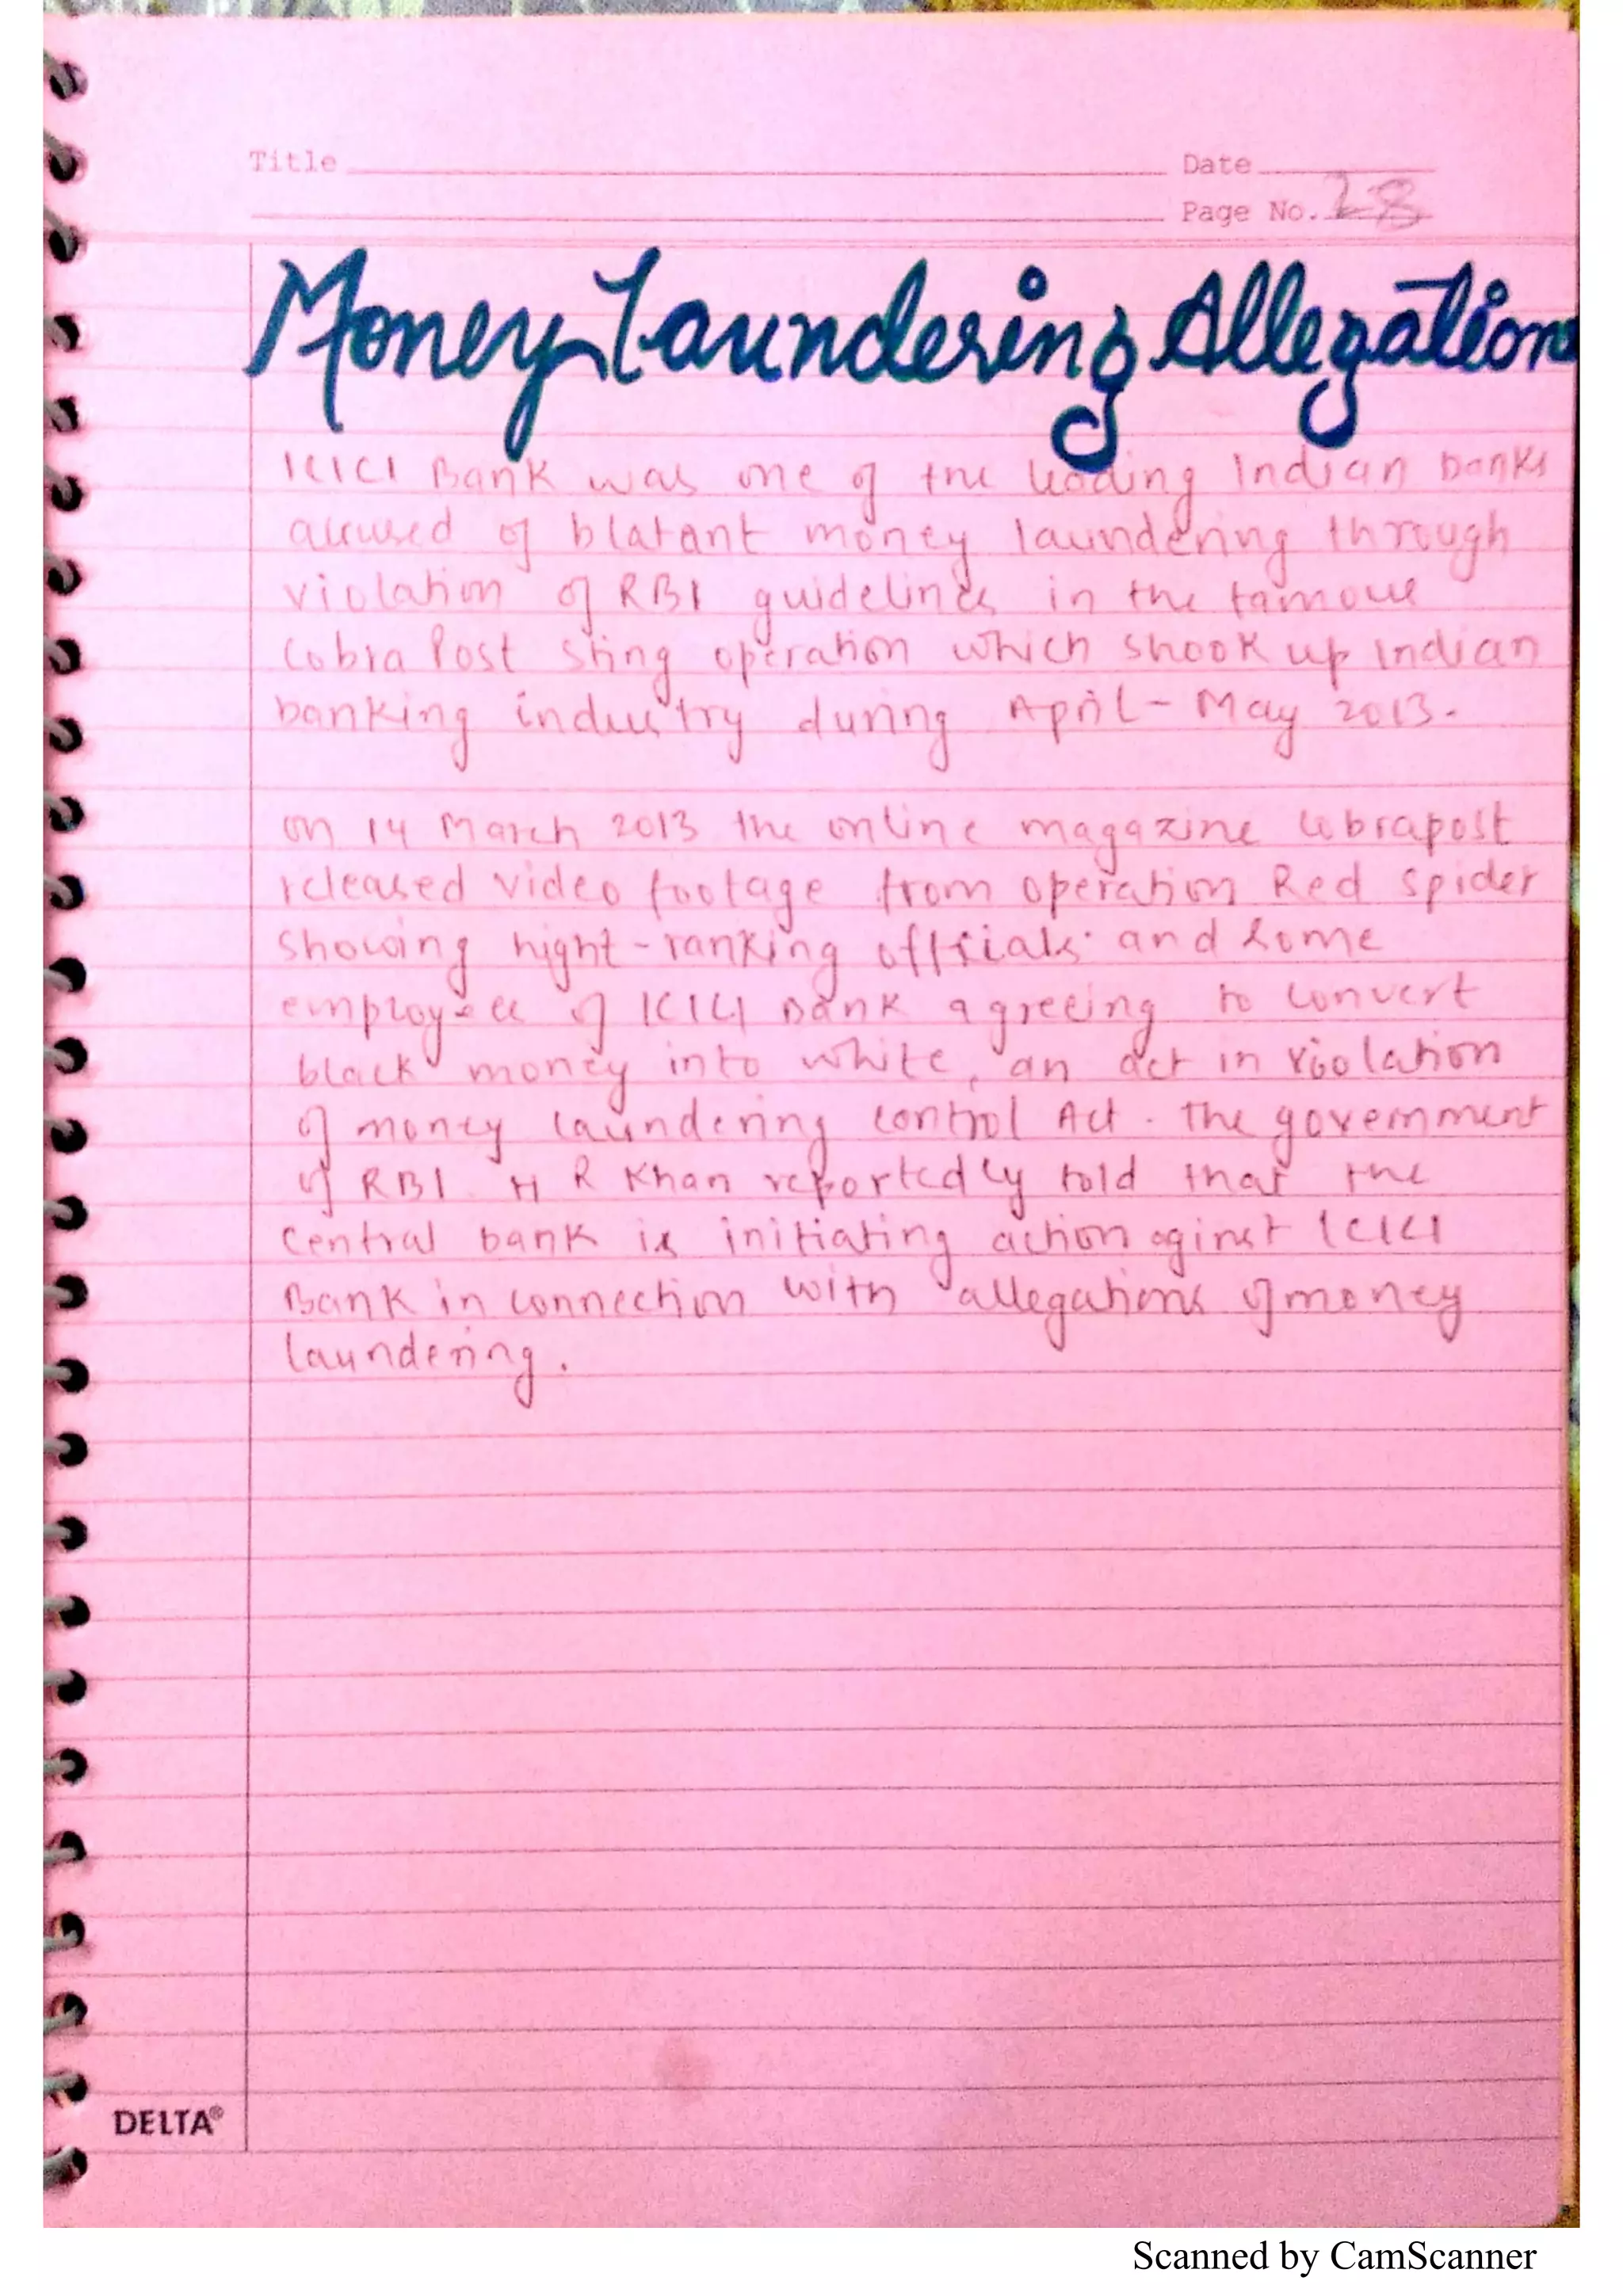 Title Date
Page No. 28
Money Laundering Allegations
ICICI Bank was one of the leading Indian Banks
accused of blatant money laundering through
violation of RBI guidelines in the famous
Cobra Post Sting operation which shook up Indian
banking industry during April - May 2013.
on 14 March 2013 the online magazine Cobrapost
released video footage from operation Red Spider
showing hight-ranking officials and some
employees of ICICI Bank agreeing to convert
black money into white, an act in violation
of money laundering control Act. The government
of RBI H R Khan reportedly told that the
central bank is initiating action aginst ICICI
Bank in connection with allegations of money
laundering.
DELTA®
Scanned by CamScanner